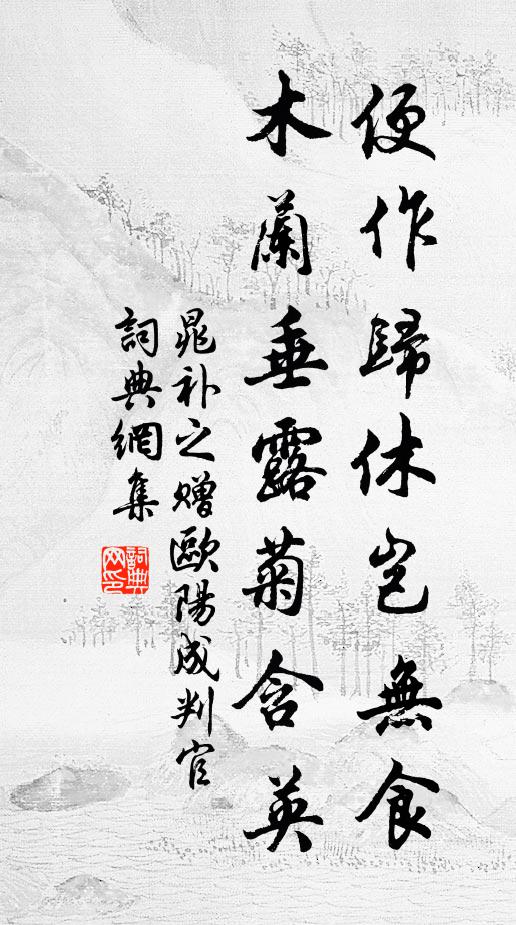 便作歸休岂無食
木蘭垂露菊含英
晁补之贈歐陽成判官
詞典網集
詞典网印